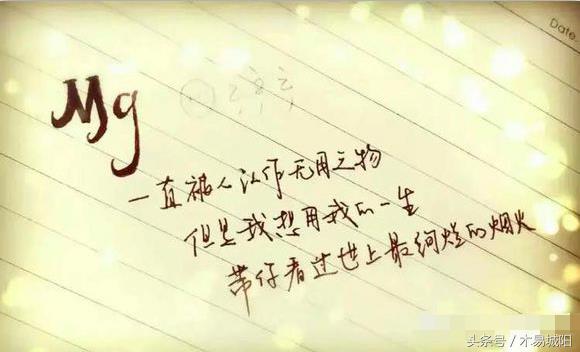 Date.
Mg
一直被人认作无用之物
但是我想用我的一生
带你看这世上最绚烂的烟火
头条号 / 木易城阳